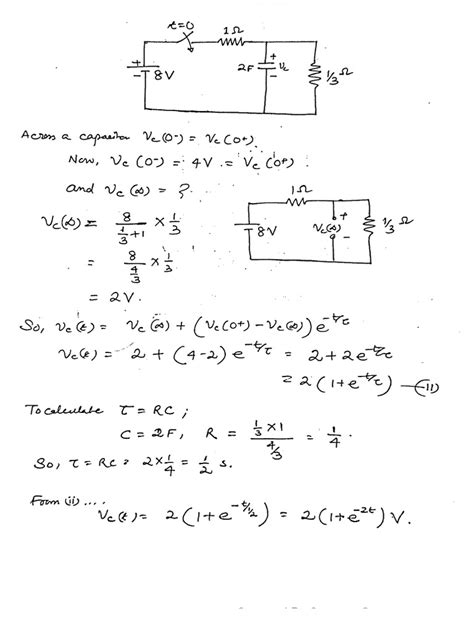 t=0
1Ω
+
-
8V
2F
+
Vc
-
1/3 Ω
Across a capacitor Vc(0-) = Vc(0+).
Now, Vc(0-) = 4V = Vc(0+).
and Vc(∞) = ?
1Ω
8V
+
Vc(∞)
-
1/3 Ω
Vc(∞) = 8/(1/3+1) × 1/3
= 8/(4/3) × 1/3
= 2V.
So, Vc(t) = Vc(∞) + (Vc(0+) - Vc(∞)) e^-t/τ
Vc(t) = 2 + (4-2) e^-t/τ = 2 + 2e^-t/τ
= 2(1+e^-t/τ) —(ii)
To calculate τ = RC ;
C = 2F, R = (1/3 × 1)/(4/3) = 1/4.
So, τ = RC = 2×1/4 = 1/2 s.
Form (ii) ....
Vc(t) = 2(1+e^-t/1/2) = 2(1+e^-2t) V.